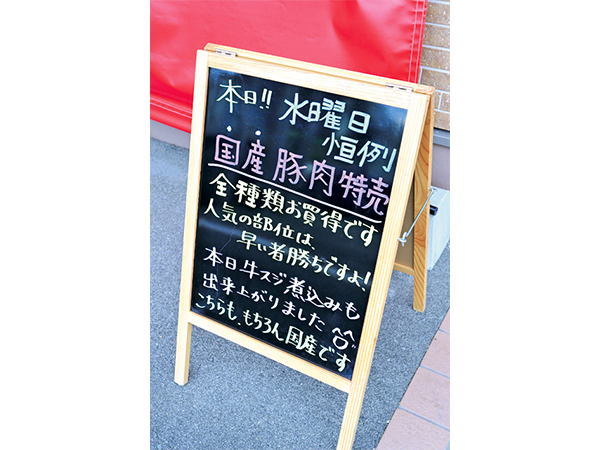 本日!! 水曜日
恒例
国産豚肉特売
全種類お買得です
人気の部位は、
早い者勝ちですよ!
本日牛スジ煮込みも
出来上がりました
こちらも、もちろん国産です